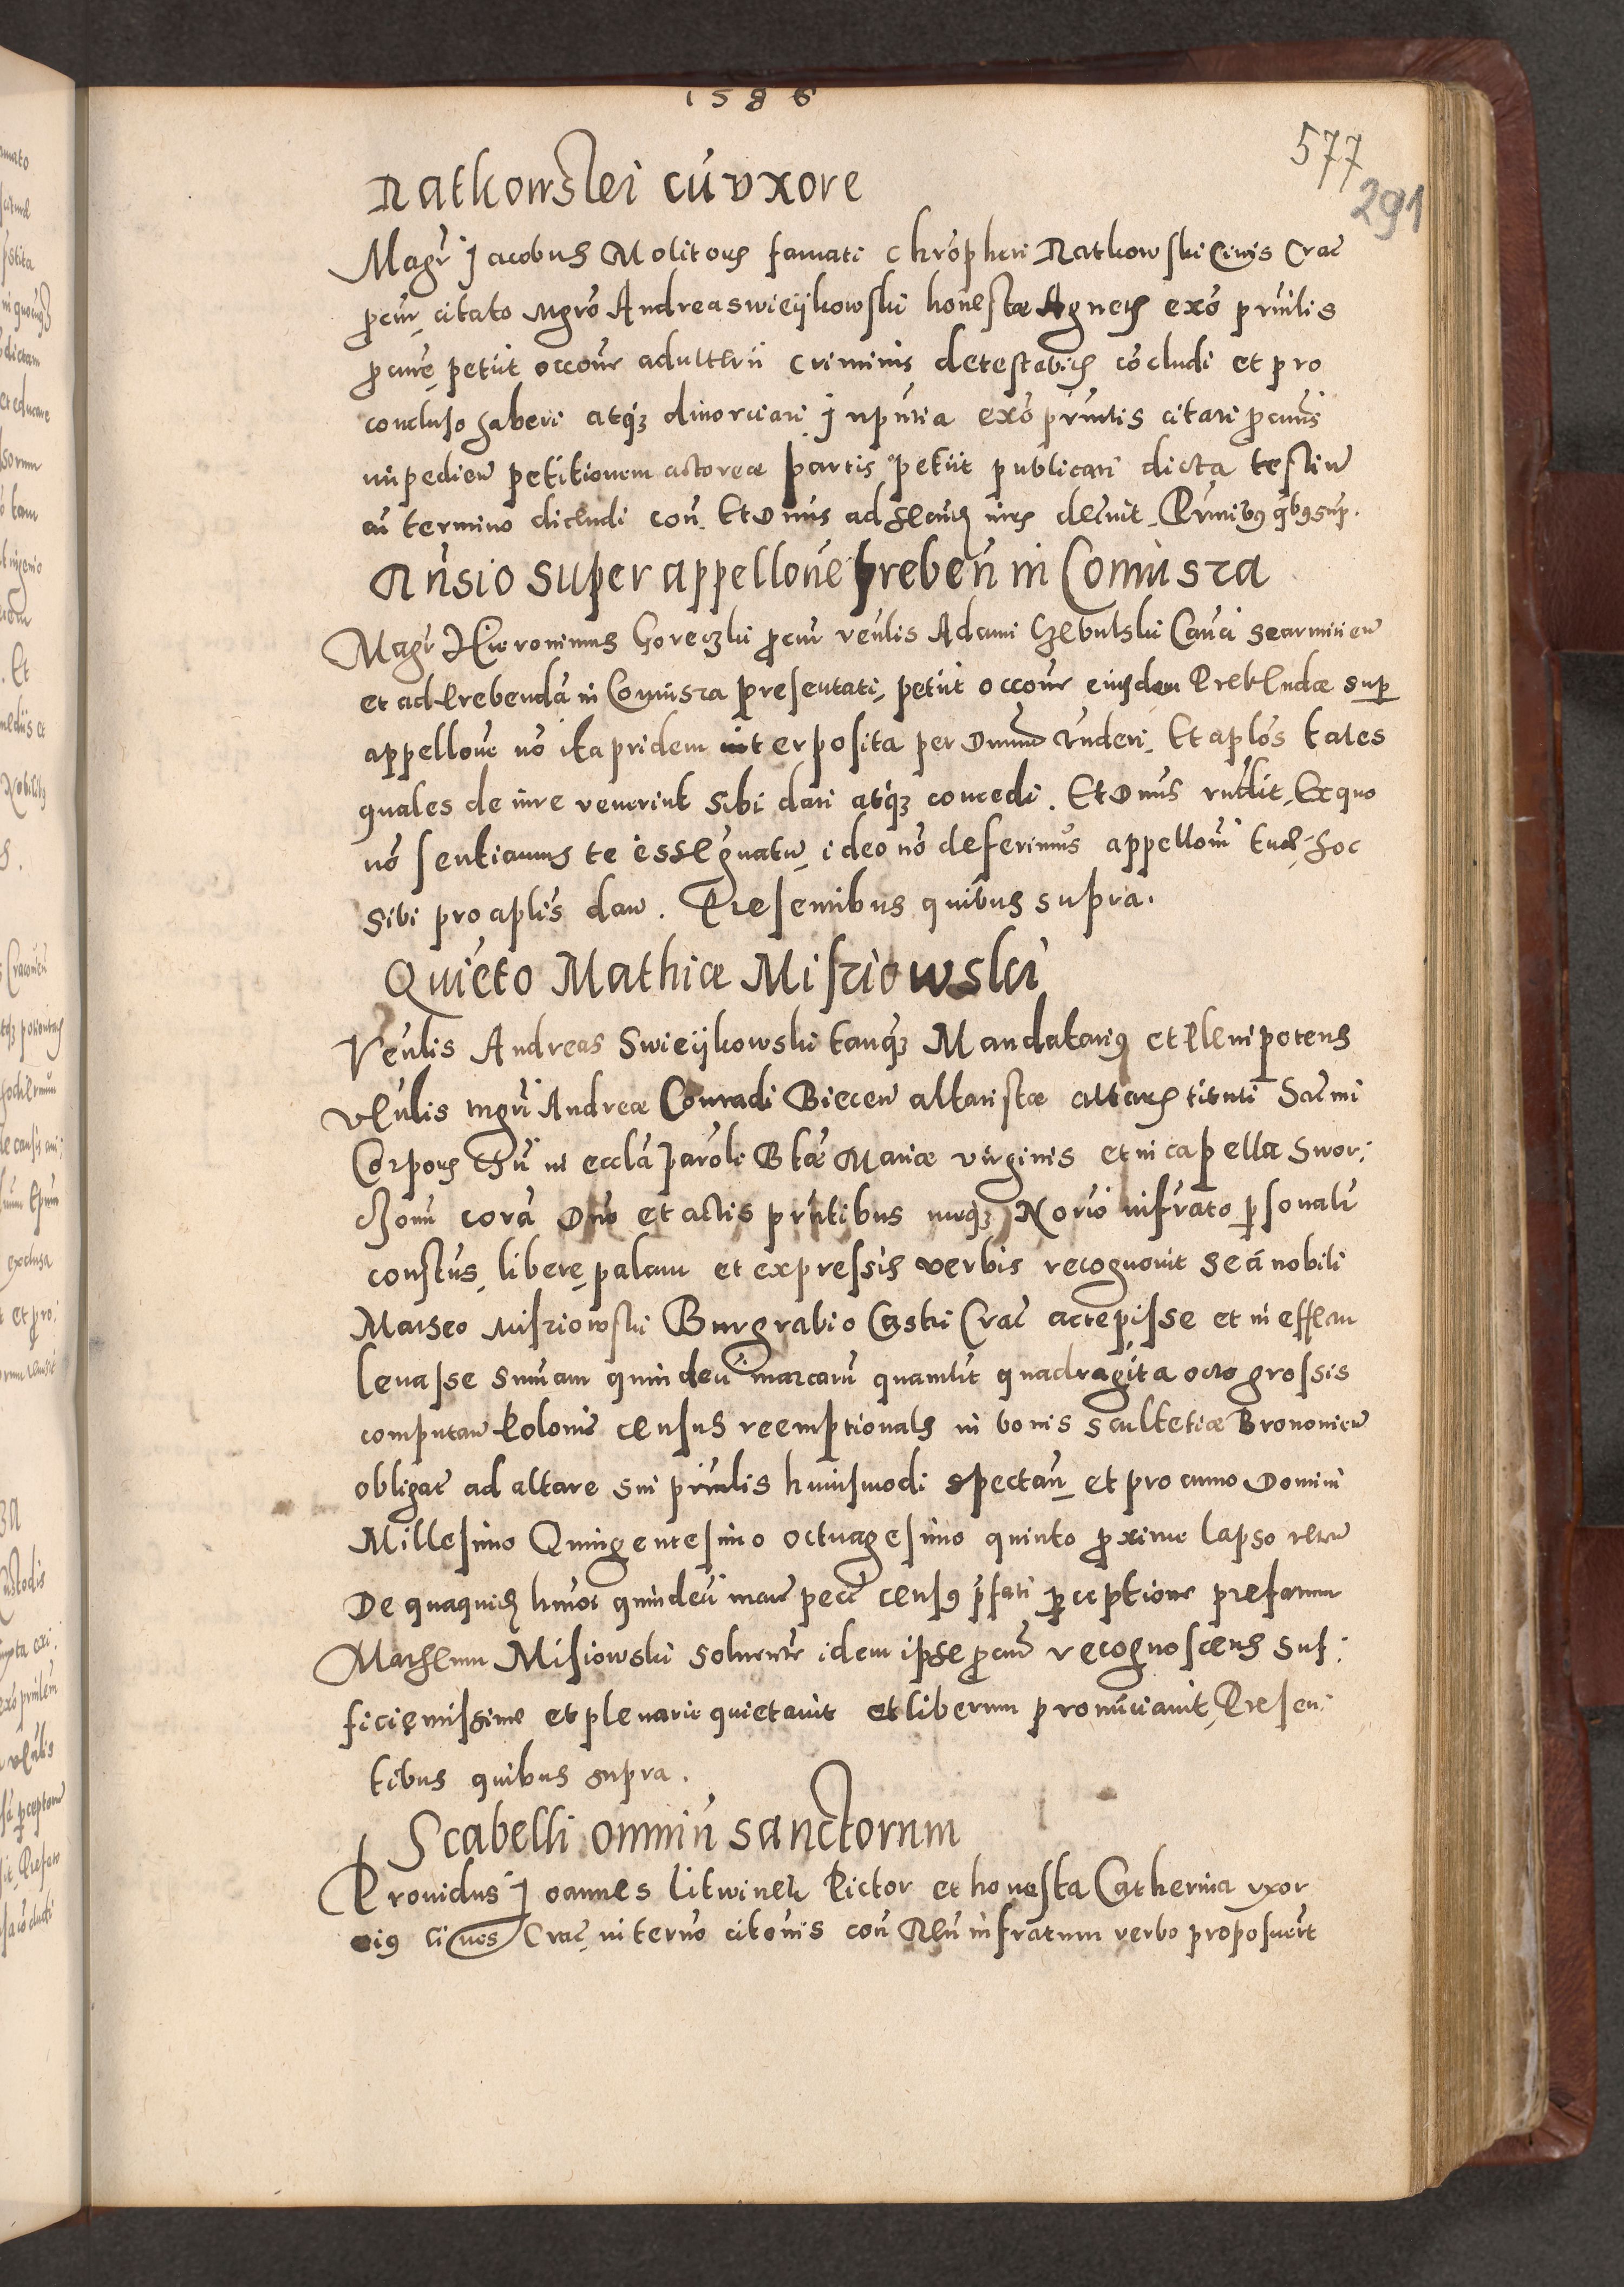 1586
577
291
Ratkowskei cū uxore
Magr Jacobus Molitoris famati Chrōpheri Ratkowski Civis Crac
procur citato mgrō Andrea swieykowski honestæ Agnetis exō prīnlis
procure petiit occone adulterii criminis detestabilis cōcludi et pro
concluso haberi atq divorciari Jnpntia exō prīntis citati procuris
impedien petitionem actoreæ partis petiit publicari dicta testiu
au termino dicendi con Et Dnus ad
Rnsio super appellone preben in Comūsza
Magr Hieronimus Goreczki procur venlis Adami Czebulski Cauci
et ad Prebendā in Comūsza presentati, petiit occone eiusdem Prebendæ sup
appellone nō ita pridem interposita per Dnum rnderi. Et aplos tales
quales de iure venerint sibi dari atq concedi. Et Dnus rndit, Ex quo
nō sentiamus te esse gnatu, ideo nō deferimus appelloni tuæ, hoc
sibi pro aplis dam. Presentibus quibus supra.
Quieto Mathiæ Misziowski
Venlis Andreas Swieykowski tanq Mandatarius et Plenipotens
venlis mgri Andreæ Conradi Biecen altaristæ altaris tituli Sacmi
Corporis Chri in eccla parōli Btæ Mariæ virginis et in capella Swor:
chonu corā Dno et actis prntibus meq Norio infrato psonalr
constus, libere, palam et expressis verbis recognovit se á nobili
Matheo Misziowski Burgrabio Castri Crac accepisse et in effectu
levasse sumam quindeci marcaru quamlit quadragita octo grossis
computan Poloni census reemptionalis in bonis scultetiæ Bronowien
obligat ad altare sui prinlis huiusmodi spectan, et pro anno Domini
Millesimo Quingentesimo octuagesimo quinto proxime lapso
De quaquid hmoi quindeci marc pecc census pfati perceptione prefatum
Matheum Misiowski solventem idem ipse procur recognoscens suf:
ficientissime et plenarie quietavit et liberum pronunciavit, Presen:
tibus quibus supra.
Scabelli omniū sanctorum
Providus Joannes Litwinek Pictor et honesta Catherina uxor
eius cives Crac, in terno citonis con Reu infratum verbo proposuert